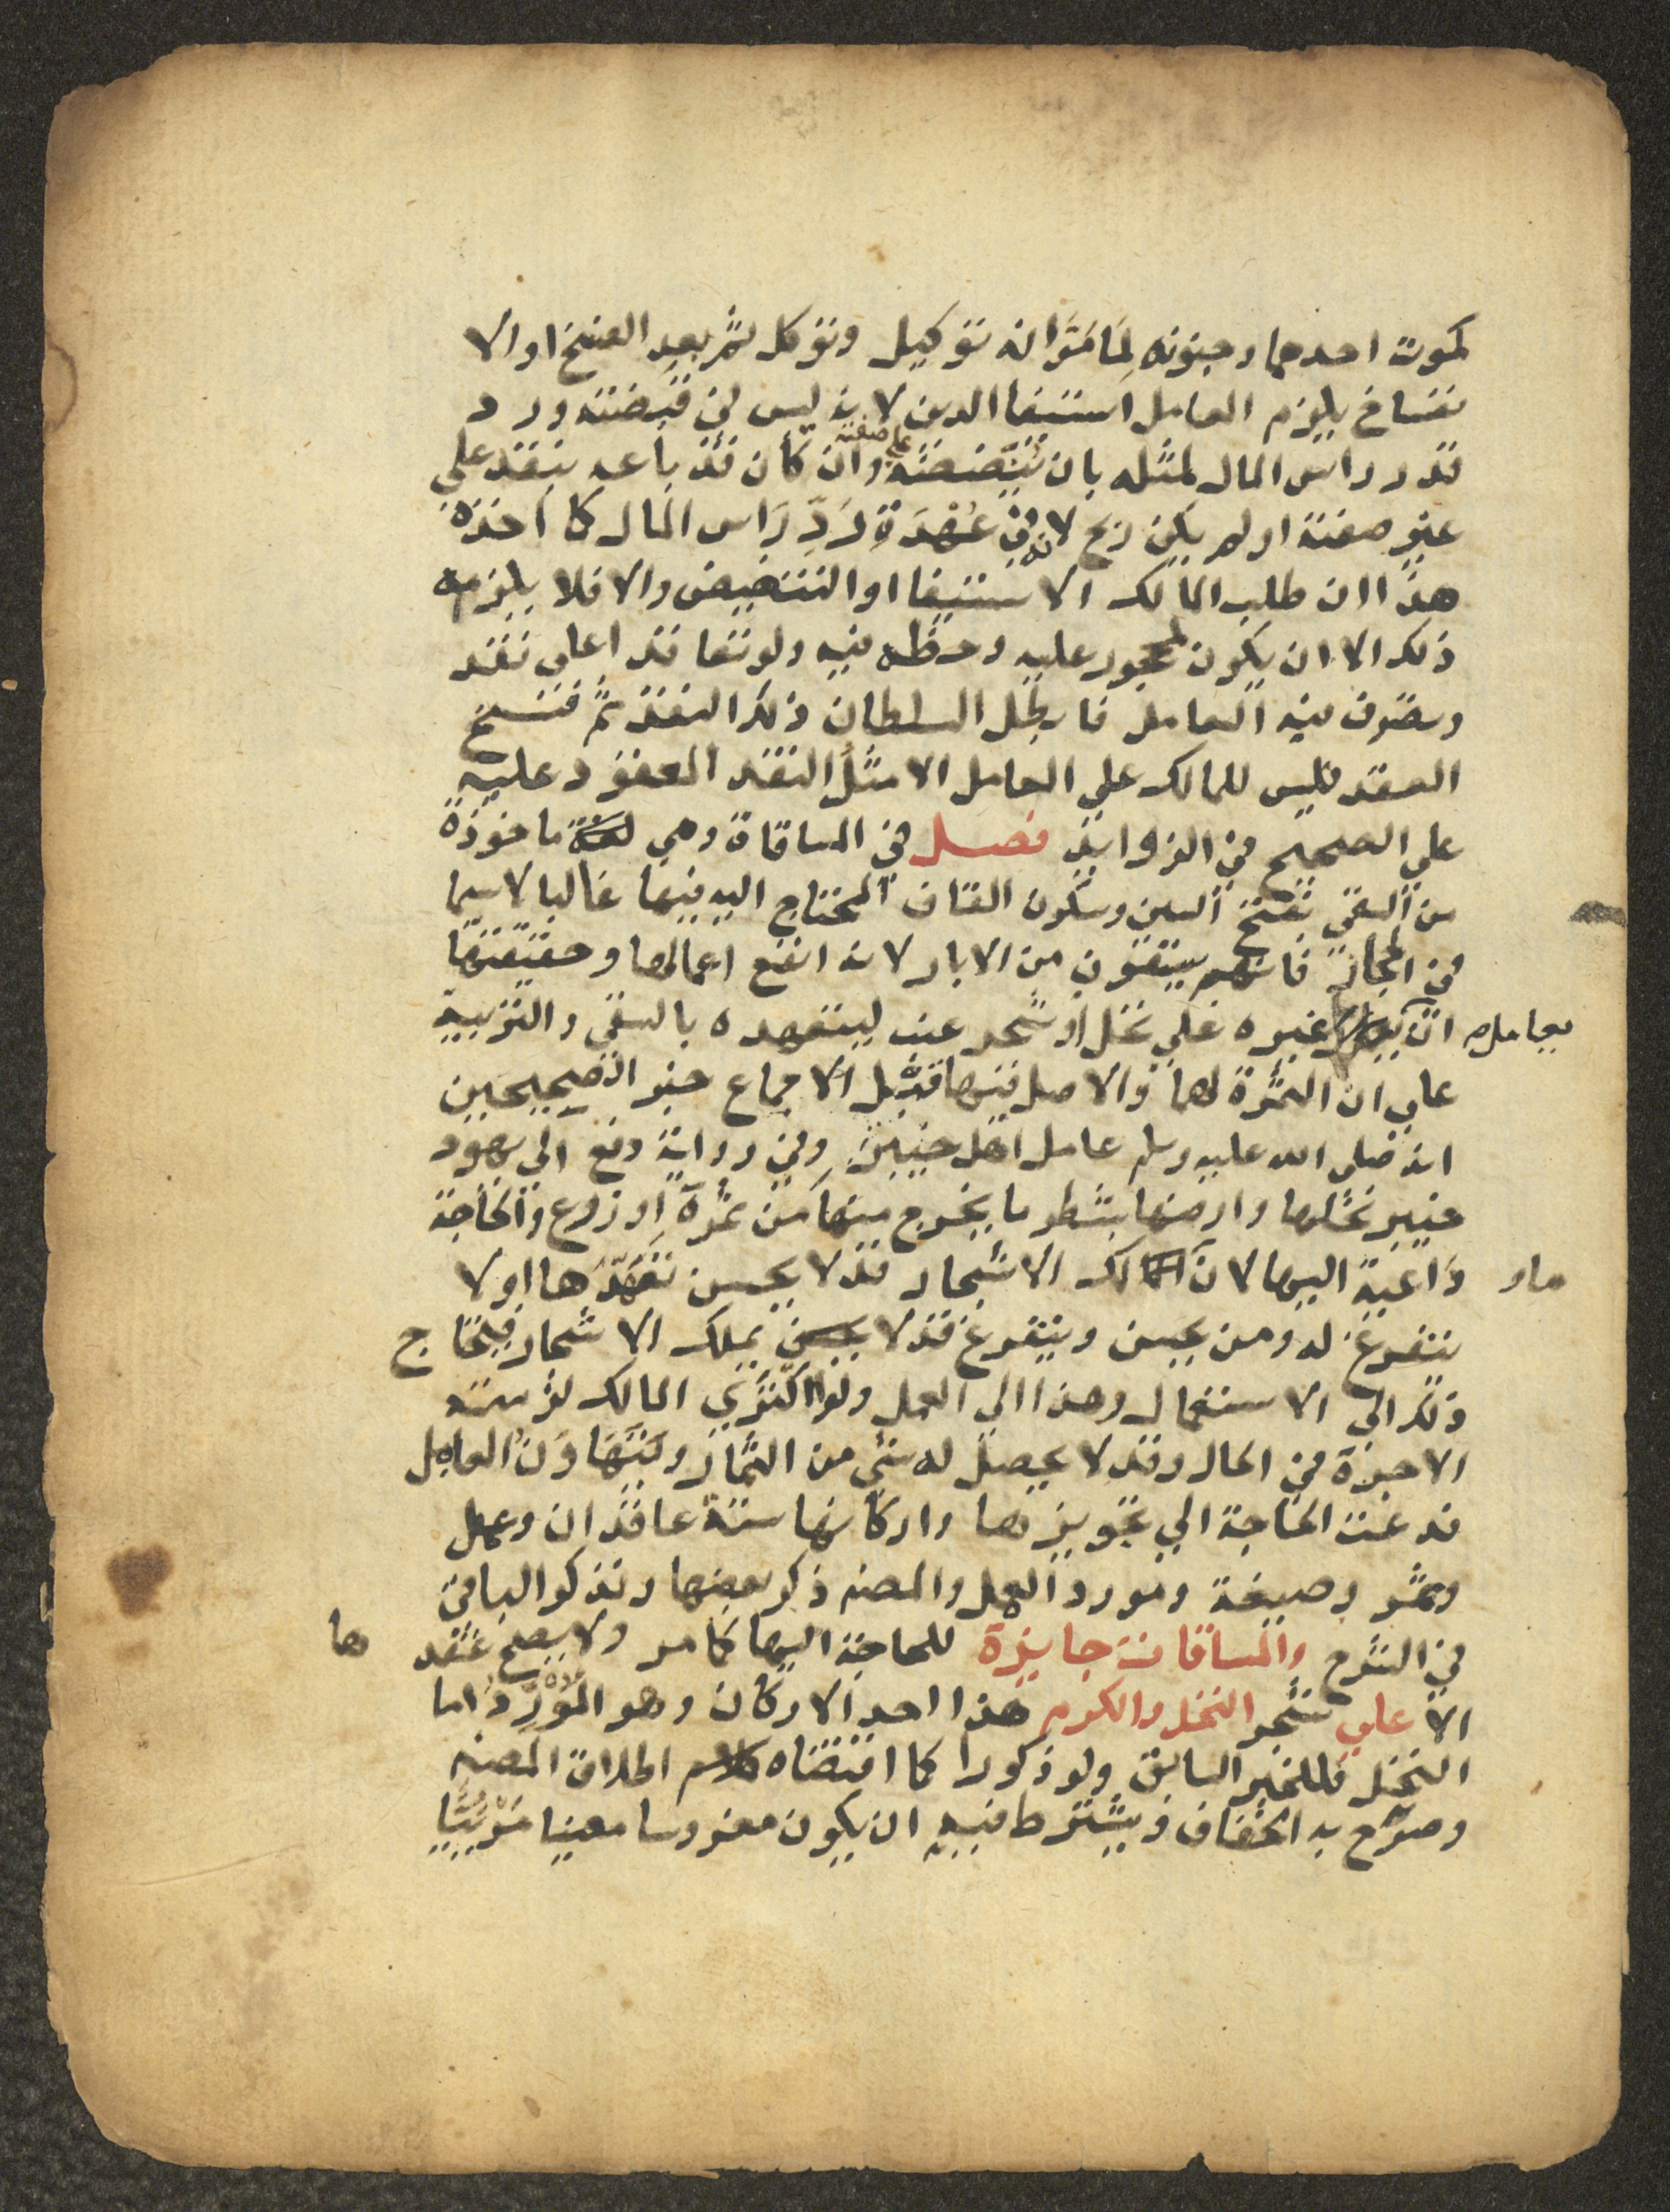 كموت احدهما وجنونه لِمَا مَرَّ انه توكيل وتوكل ثم بعد الفسخ او الا
نفساخ يلزم العامل استيفا الدين لانه ليس في قبضته ورد
قدر راس المال لمثله بان ينضضه على صفته وان كان قد باعه بنقد على
غير صفته او لم يكن ربح لانه في عُهْدَةِ رَدِّ رَاس المال كما اخذه
هذا ان طلب المالك الاستيفا او التنضيض والا فلا يلزمه
ذلك الا ان يكون لمحجور عليه وحظه فيه ولو تعاقدا على نقد
وتصرف فيه العامل فابطل السلطان ذلك النقد ثم فسخ
العقد فليس للمالك على العامل الا مثل النقد المعقود عليه
على الصحيح في الزوايد فصل في المساقاة وهي لغة ماخوذة
من السقي بفتح السين وسكون القاف المحتاج اليه فيها غالبا لاسيما
في الحجاز فانهم يسقون من الابار لانه انفع اعمالها وحقيقتها
يعامل ان غيره على نخل او شجر عنب ليتعهده بالسقي والتربية
على ان الثمرة لهما والاصل فيها قبل الاجماع خبر الصحيحين
انه صلى الله عليه وسلم عامل اهل خيبر وفي رواية دفع الى يهود
خيبر نخلها وارضها بشطر ما يخرج منها من ثمرة او زرع والحاجة
داعية اليها لان مالك الاشجار قد لا يحسن تعهّدها او لا
يتفرغ له ومن يحسن ويتفرغ قد لا يحسن يملك الاشجار فيحتاج
ذلك الى الاستعمال وهذا الى العمل ولو اكترى المالك لزمته
الاجرة في الحال وقد لا يحصل له شي من الثمار ويتهاون العامل
فدعت الحاجة الي تجويزها واركانها ستة عاقدان وعمل
وثمر وصيغة ومورد العمل والمصنف ذكر بعضها ونذكر الباقي
في الشرح والمساقات جايزة للحاجة اليها كما مر ولا يصح عقدها
الا على شجر النخل والكرم هذا احد الاركان وهو المَوْرِدُ اما
النخل فللخبر السابق ولو ذكورا كما اقتضاه كلام اطلاق المصنف
وصرح به الخفاف ويشترط فيه ان يكون مغروسا معينا مَرْئِيًّا